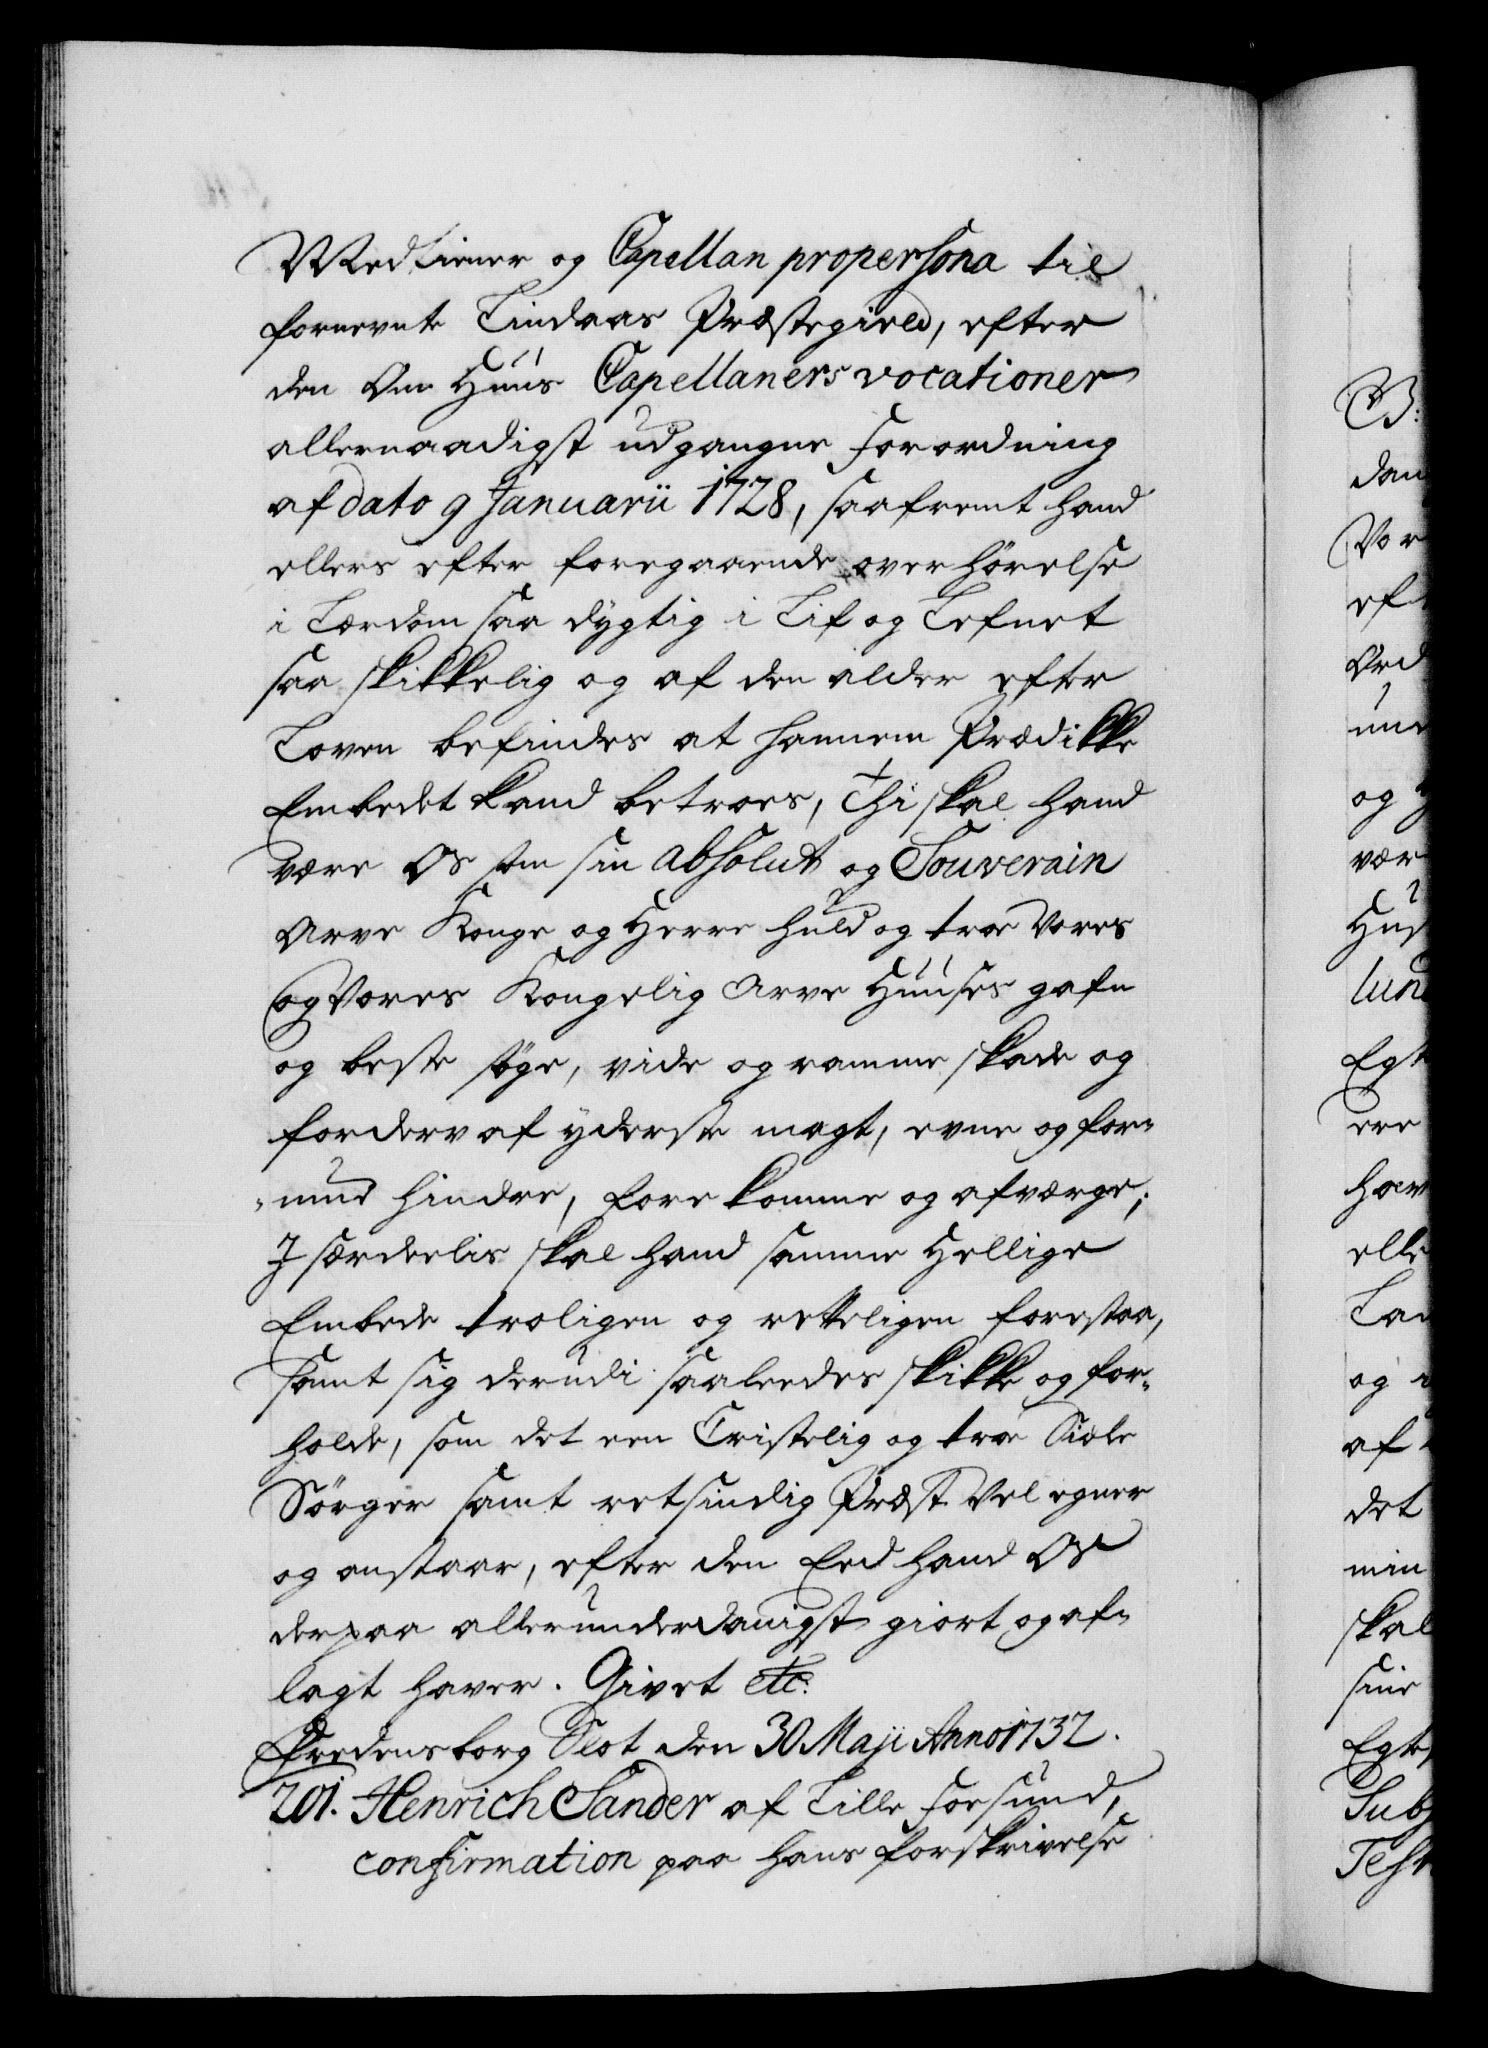 Medtiener og Capellan propersona til
fornevnte Lindaas Præstegield, efter
den Om Huus Capellaners vocationer
allernaadigst udgangne Forordning
af dato 9 Januarii 1728, saafremt hand
ellers efter foregaaende overhörelse
i Lærdom saa dygtig i Lif og Lefnet
saa skikkelig og af den alder efter
Loven befindes at hannem Prædikke
Embedet kand betroes, Thi skal hand
være Os som sin absolut og Souverain
Arve Konge og Herre huld og troe Vores
og Vores Kongelig Arve Huuses gafn
og beste söge, vide og ramme skade og
forderv af yderste magt, evne og for-
-mue hindre, forekomme og afværge;
I særdeelis skal hand samme Hellige
Embede troligen og retteligen forestaa,
samt sig derudi saaleedes skikke og for-
holde, som det een Cristelig og troe Siæle
Sörger samt retsindig Præst vel egner
og anstaar, efter den Eed hand Os
derpaa allerunderdanigst giort og af-
lagt haver. Givet etc:
Fredensborg Slot den 30 Maji Anno 1732.
201. Henrich Sander af Lille Forsund,
confirmation paa hans forskrivelse
B:
dan
Vor
eft
Ord
und
og H
vær
Hus
lund
Egt
ere
hav
elle
Lan
og
af
det
min
skal
sine
Egte
Sub
Test